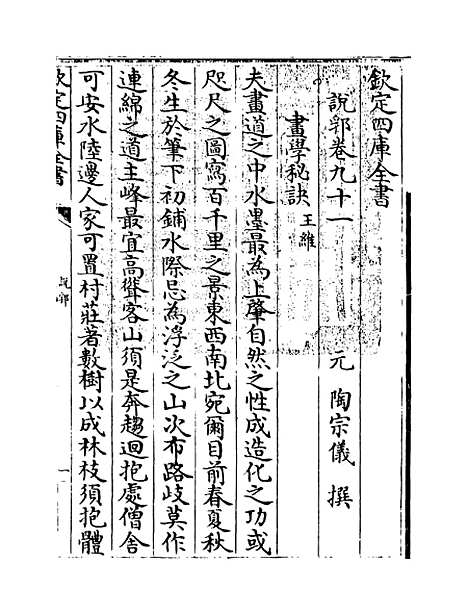 欽定四庫全書
說郛卷九十一
元 陶宗儀 撰
畫學秘訣 王維
夫畫道之中水墨最為上肇自然之性成造化之功或
咫尺之圖寫百千里之景東西南北宛爾目前春夏秋
冬生於筆下初鋪水際忌為浮泛之山次布路歧莫作
連綿之道主峰最宜高聳客山須是奔趨迴抱處僧舍
可安水陸邊人家可置村莊著數樹以成林枝須抱體
欽定四庫全書
說郛
一